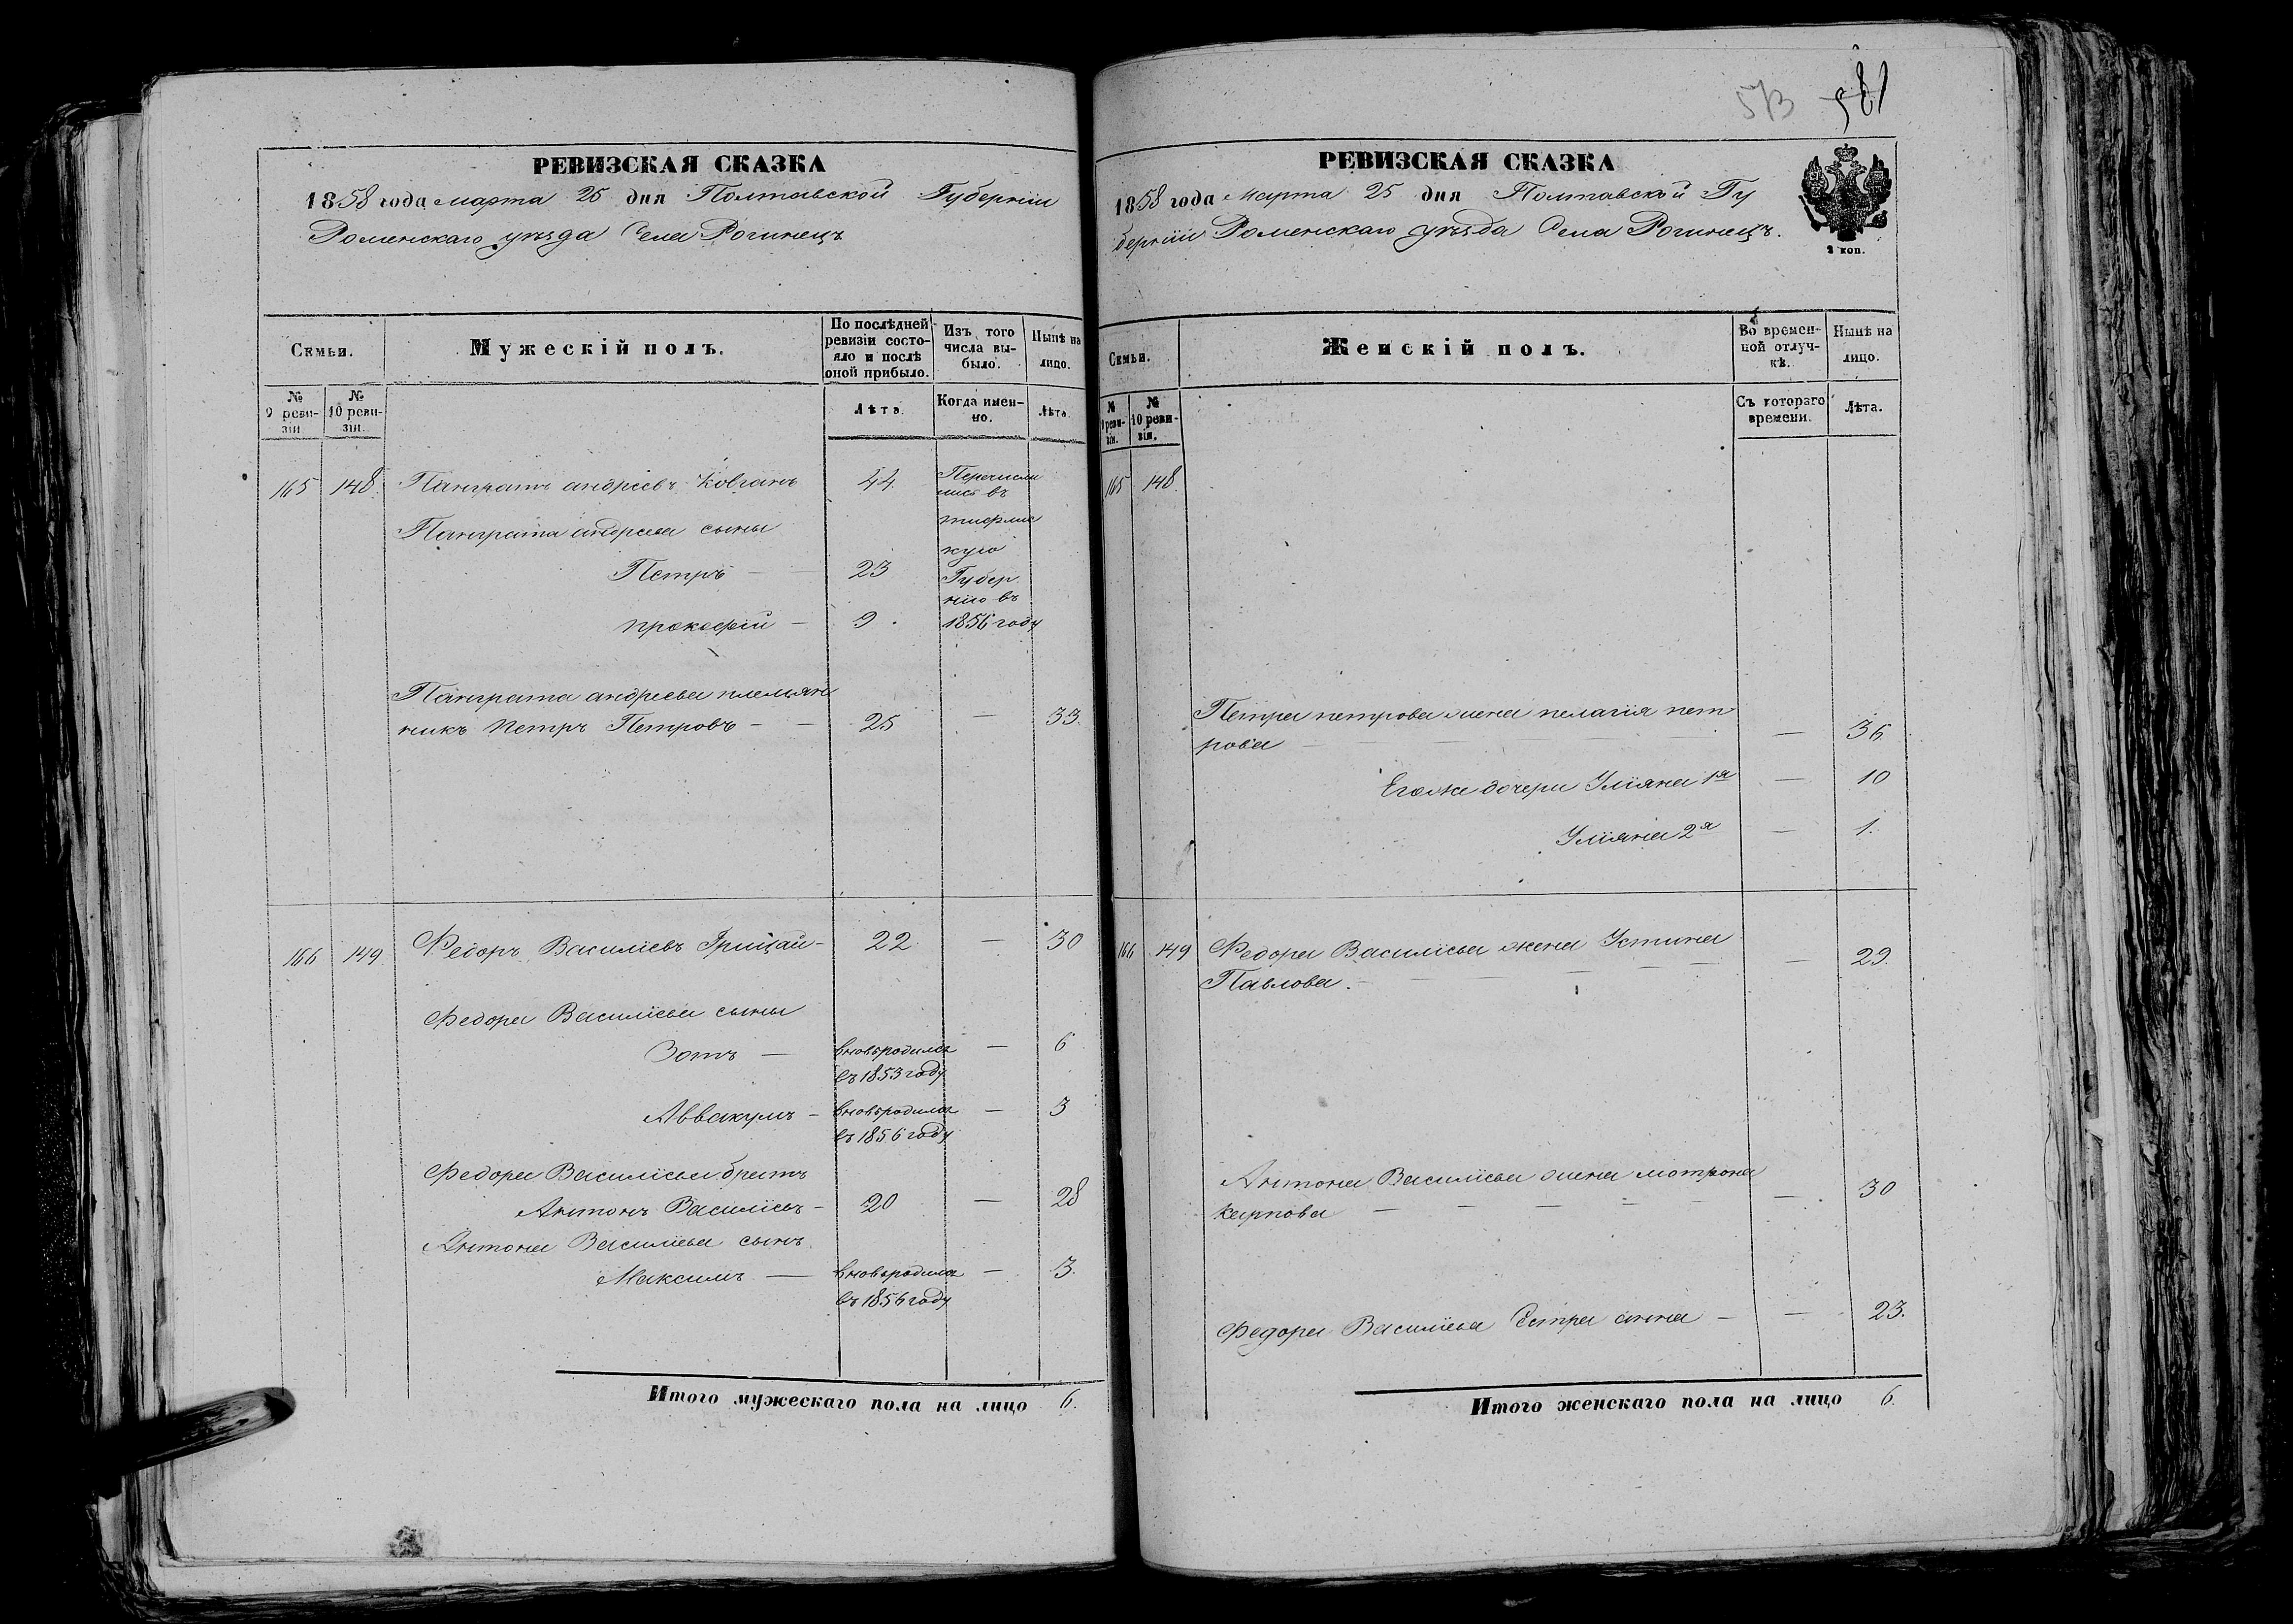 573 581
РЕВИЗСКАЯ СКАЗКА
1858 года марта 25 дня Полтавской Губерніи
Роменскаго уѣзда Села Рогинецъ
Семьи.
Мужескій полъ.
По послѣдней ревизіи состояло и послѣ оной прибыло.
Изъ того числа выбыло.
Нынѣ на лицо.
№ 9 ревизіи.
№ 10 ревизіи.
Лѣта.
Когда именно.
Лѣта.
165 148 Панкратъ андріевъ Ковганъ 44
Перечисли
лись въ
тифлис
кую
Губер
нію въ
1856 году
Панкрата андріева сыны
Петръ — 23
прокофій — 9
Панкрата андріева племян
никъ Петръ Петровъ — 25 — 33.
166 149 Федоръ Василіевъ Грицай — 22 — 30
Федора Василіева сыны
Зотъ — вновьродился — 6
въ 1853 году
Аввакумъ — вновьродился — 3
въ 1856 году
Федора Василіева братъ
Антонъ Василіевъ — 20 — 28
Антона Василіева сынъ
Максимъ — вновьродился — 3.
въ 1856 году
Итого мужескаго пола на лицо 6.
РЕВИЗСКАЯ СКАЗКА
1858 года Марта 25 дня Полтавской Гу
берніи Роменскаго уѣзда Села Рогинецъ.
2 коп.
Семьи.
Женскій полъ.
Во временной отлучкѣ.
Нынѣ на лицо.
№ 9 ревизіи.
№ 10 ревизіи.
Съ котораго времени.
Лѣта.
165 148.
Петра петрова жена пелагія пет
рова — 36
Егоже дочери Уліяна 1я — 10
Уліяна 2я — 1.
166 149 Федора Василіева жена Устина
Павлова. — 29
Антона Василіева жена мотрона
карпова — 30
Федора Василіева Сестра анна — 23.
Итого женскаго пола на лицо 6.